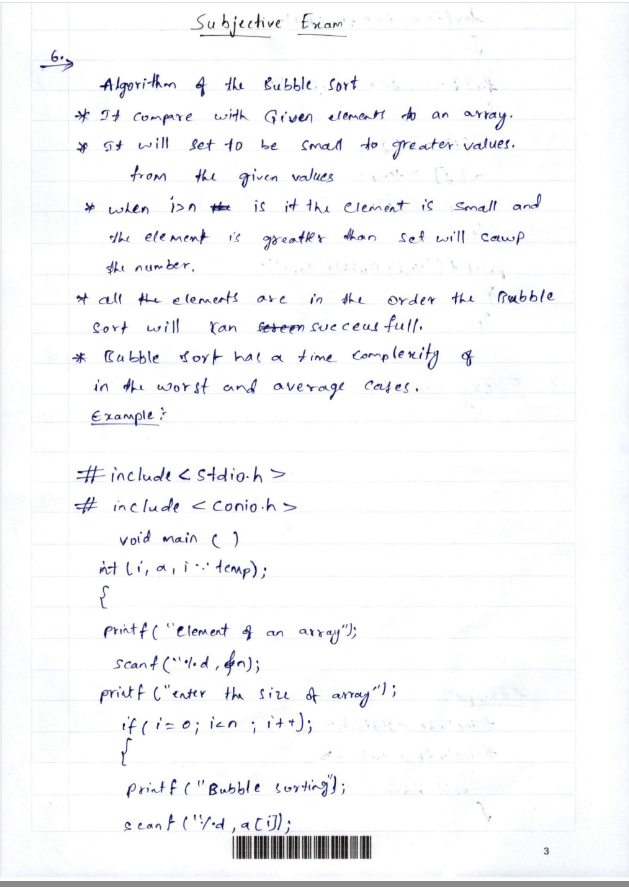 Subjective Exam:
6.
Algorithm of the Bubble sort
* It compare with Given elements to an array.
* It will set to be small to greater values.
from the given values
* when i>n is it the element is small and
the element is greatter than set will sawp
the number.
* all the elements are in the order the Bubble
sort will ran succeusfull.
* Bubble sort has a time complexity of
in the worst and average cases.
Example:
# include < stdio.h >
# include < conio.h >
void main ( )
int (i, a, i temp);
{
printf ( "Element of an array");
scanf ("%d, &n);
printf ("enter the size of array");
if ( i = 0; i<n ; i++);
{
printf ( "Bubble sorting");
scanf ("%d, a[i]);
3